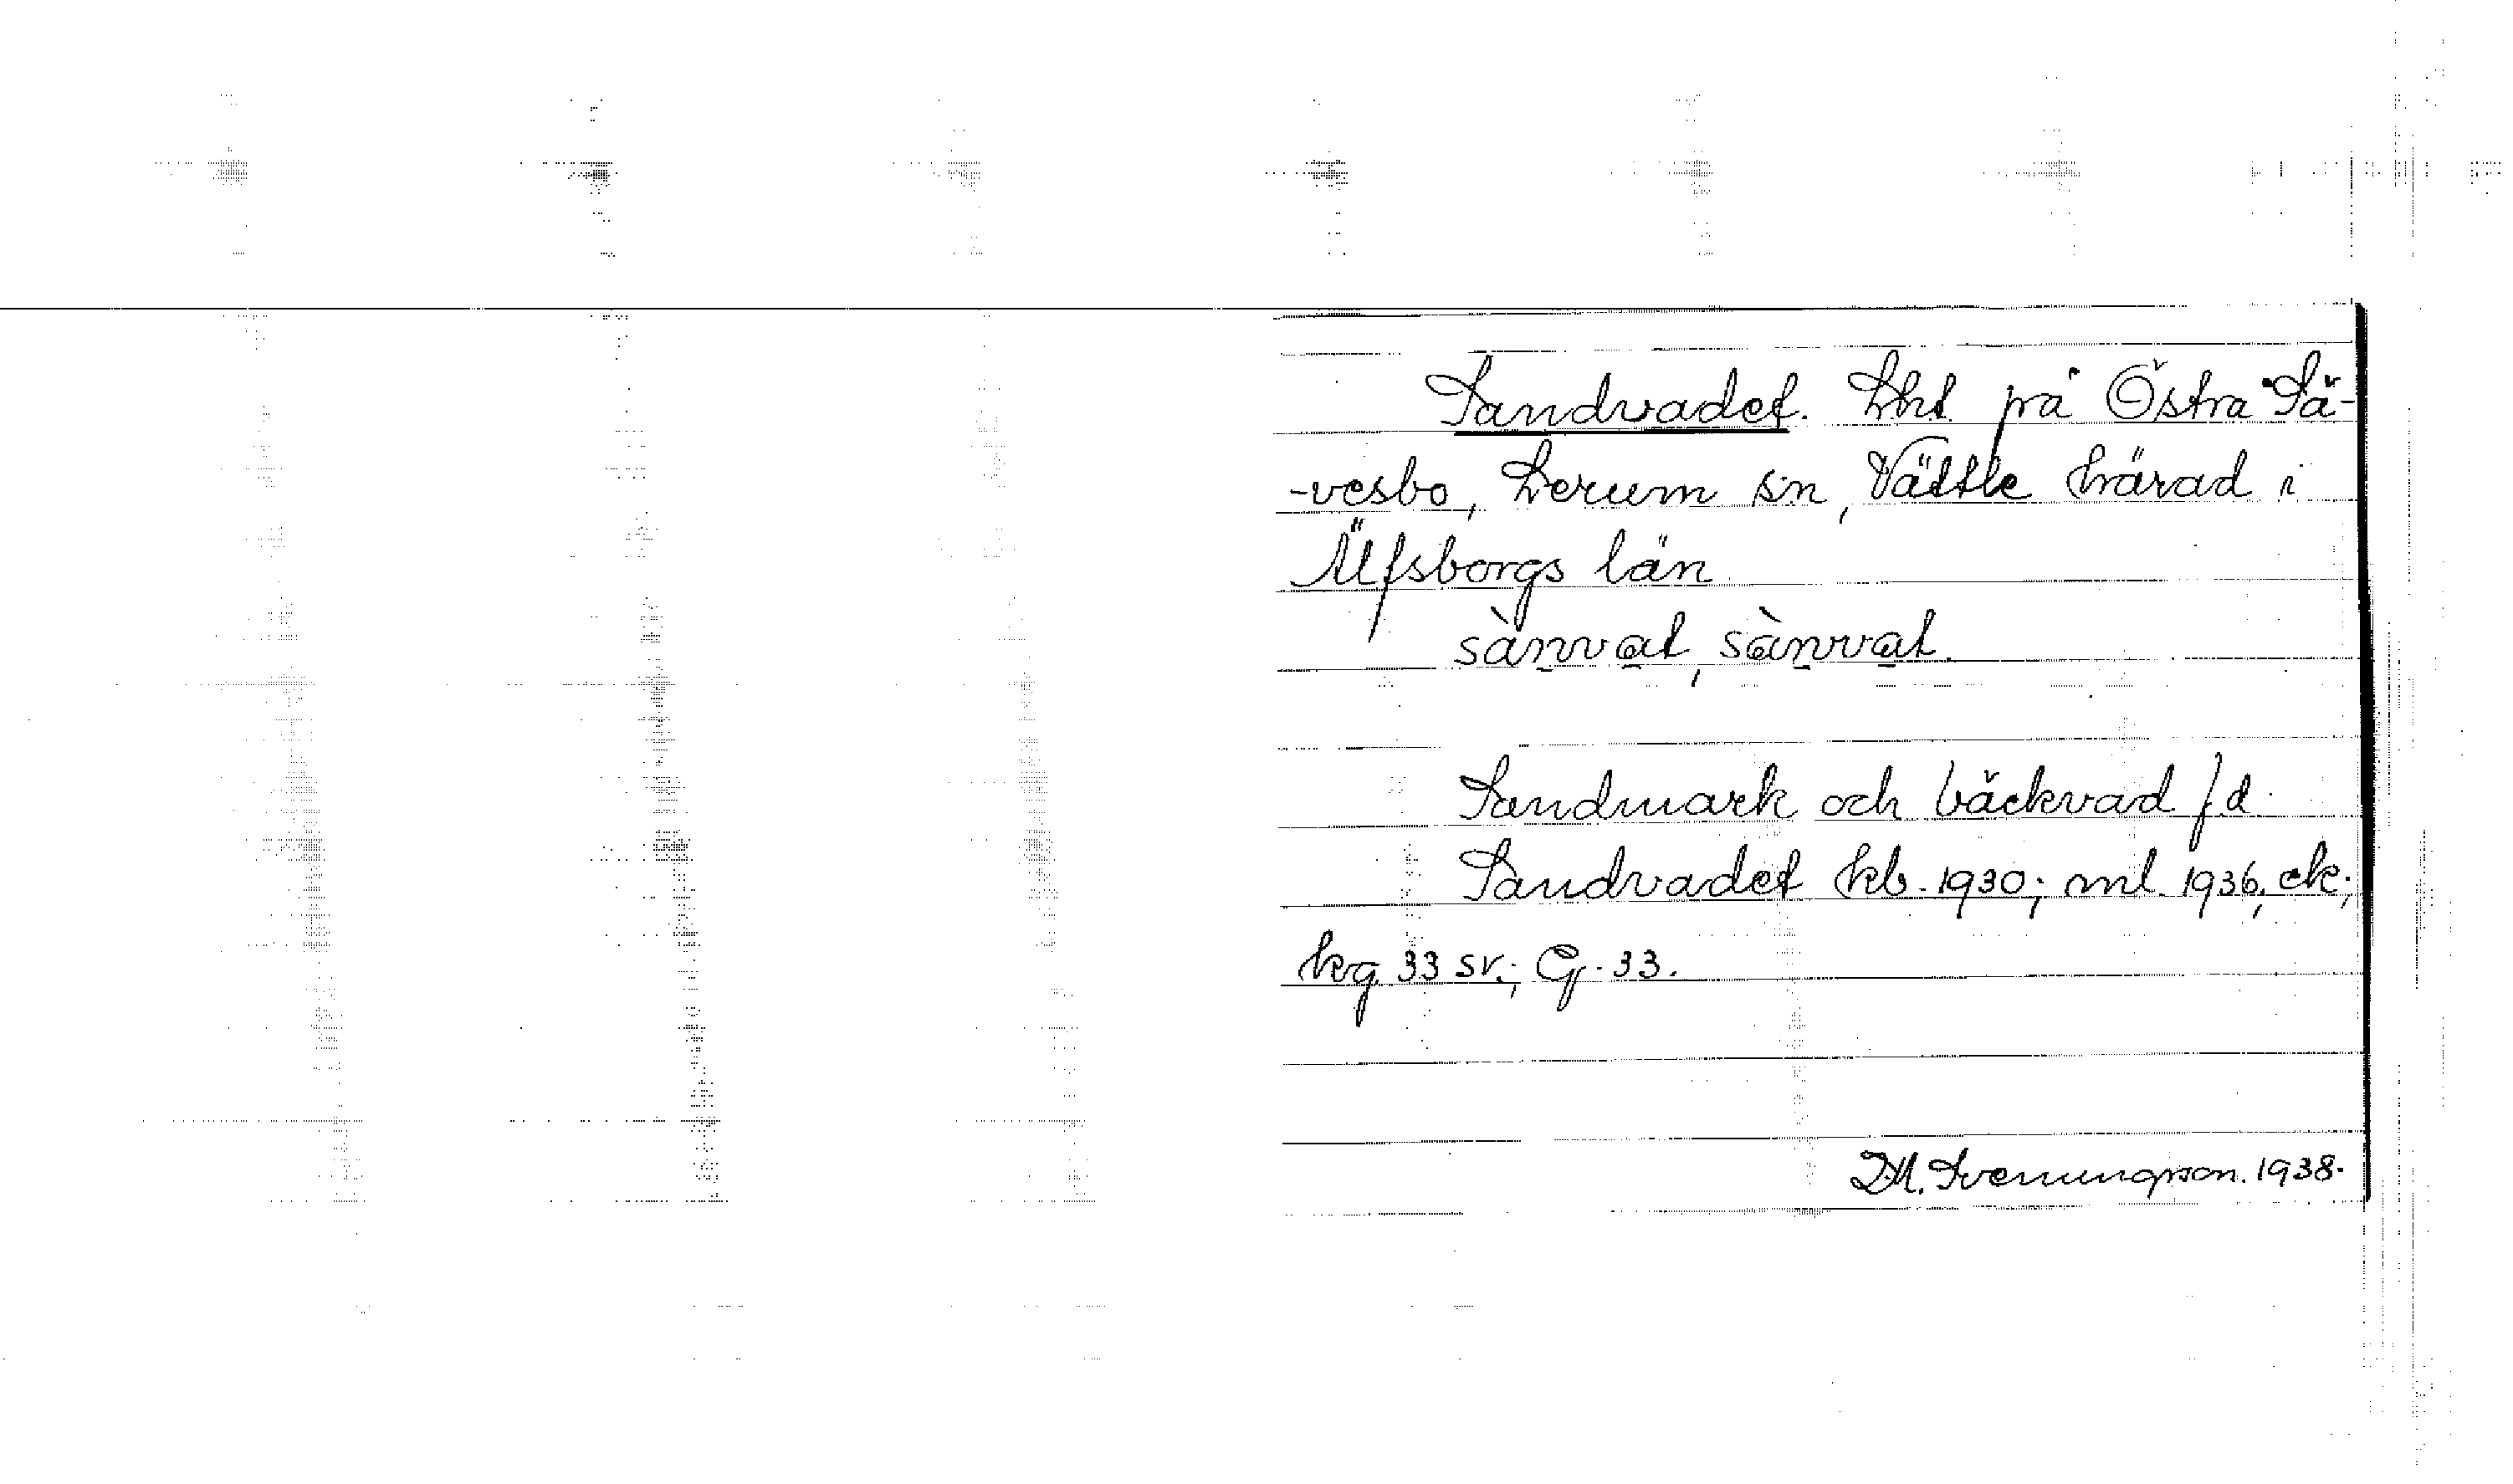 Sandvadet. Lht på Östra Sä-
-vesbo, Lerum sn, Vättle härad i
Älfsborgs län
sànvat, sànvat.
Sandmark och bäckvad f.d.
Sandvadet kb. 1930; ml. 1936, ek;
kg. 33 sv.; G. 33.
D.M. Svenungsson. 1938.